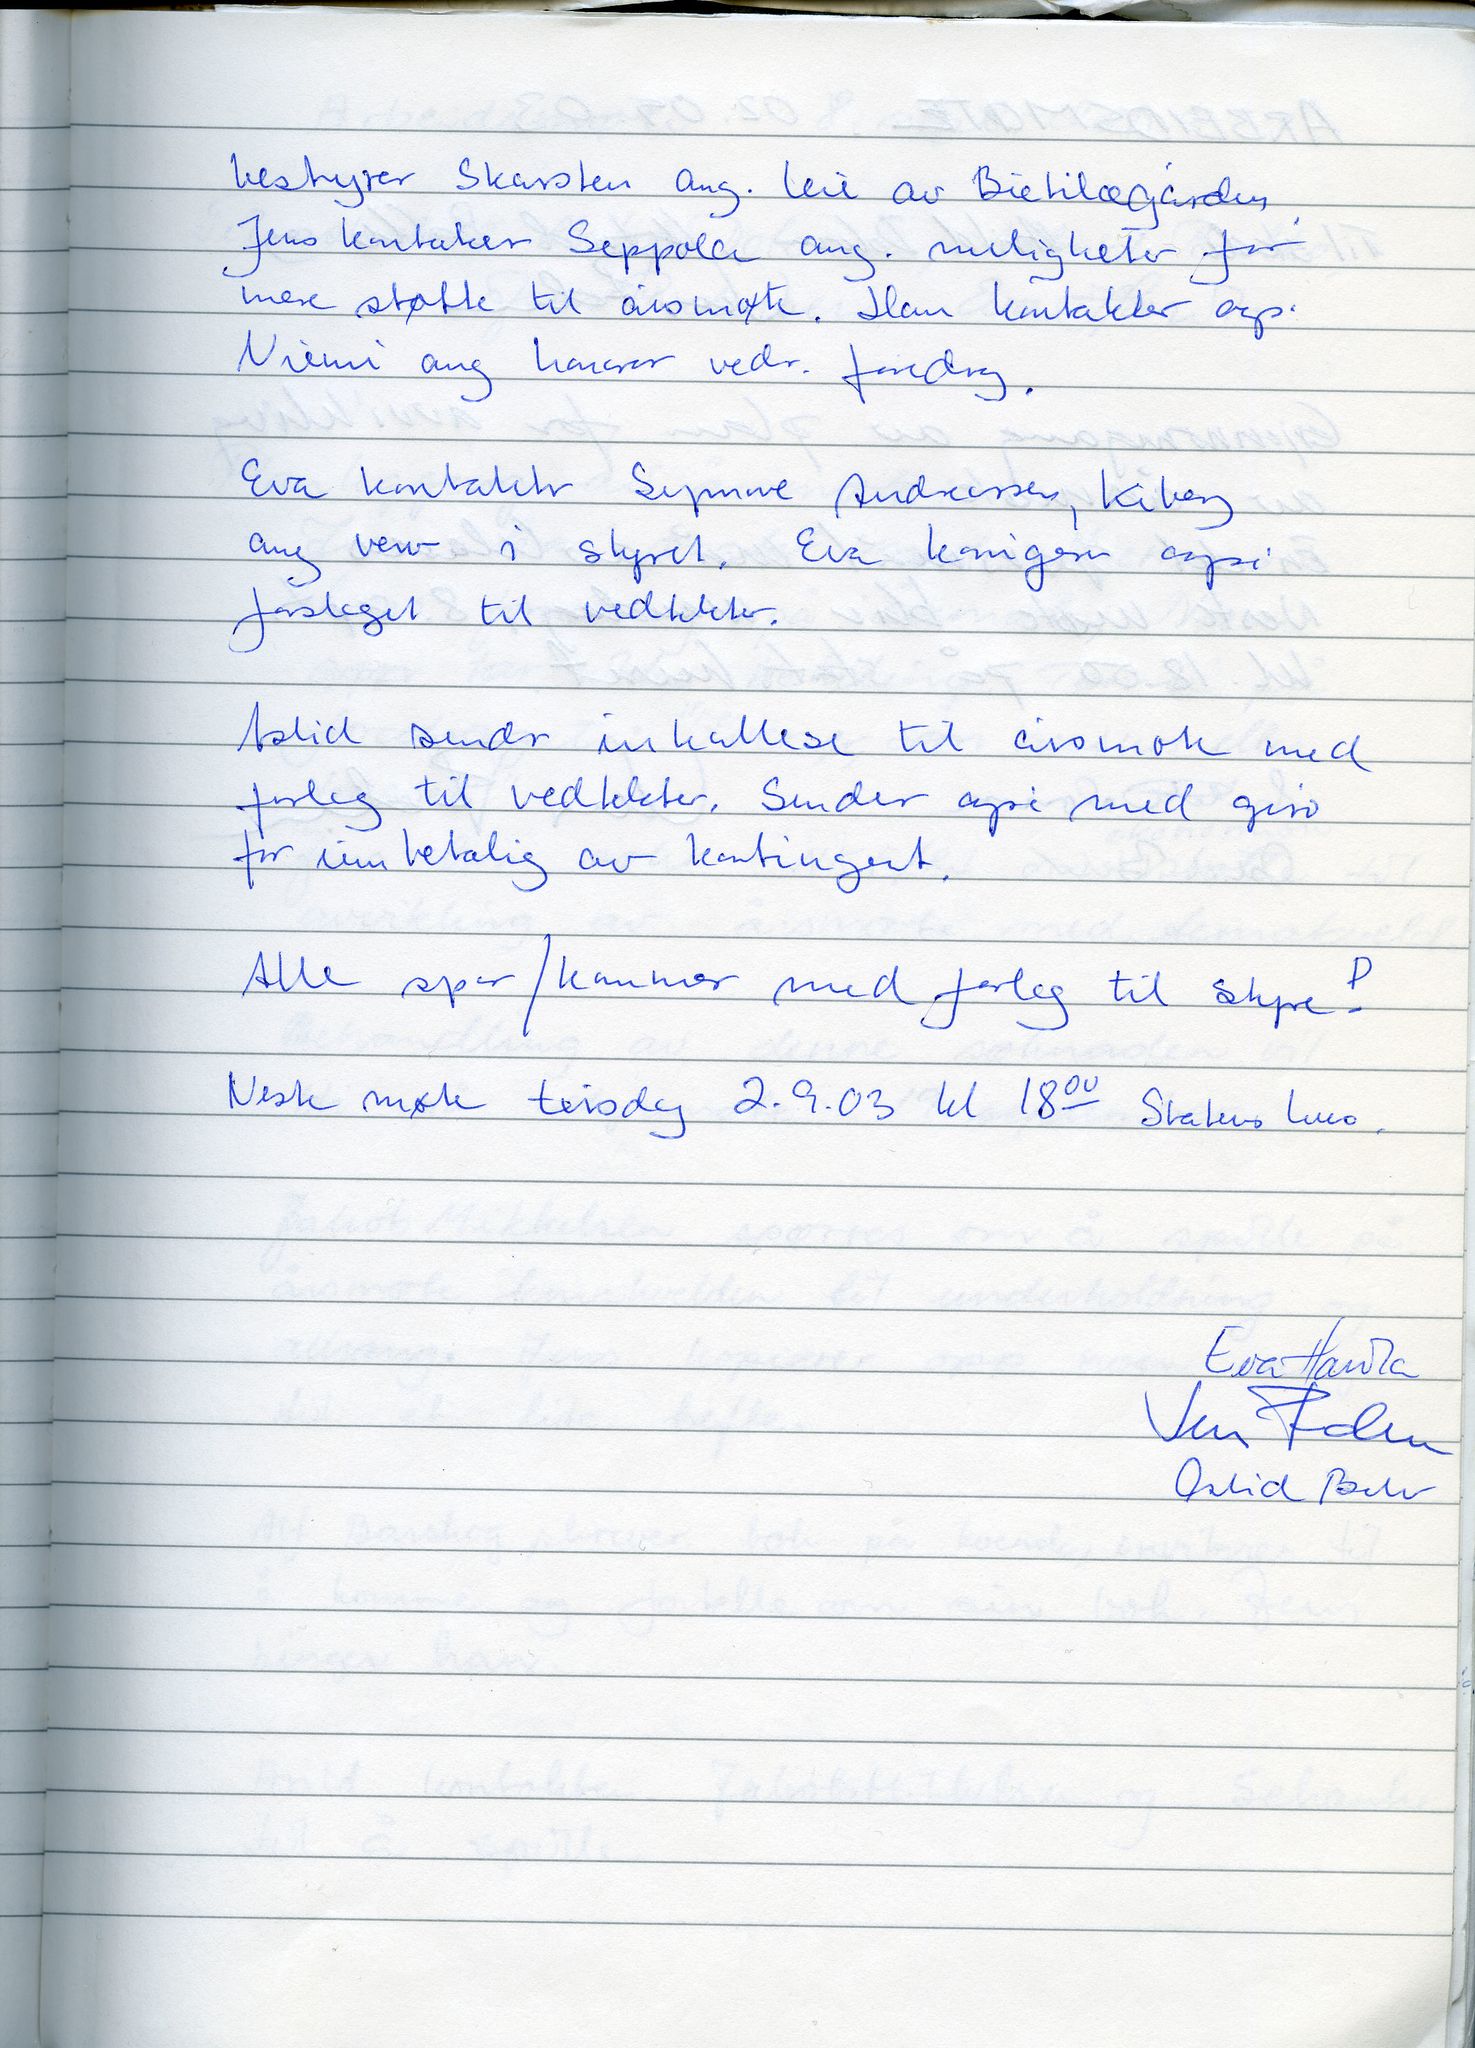 bestyrer Skarsten ang. leie av Bietilægården.
Jens kontakter Seppola ang. muligheter for
mere støtte til årsmøte. Han kontakter også
Niemi ang honorar vedr. foredrag.
Eva kontakter Synnøve Andreassen, Kiberg
ang verv i styret. Eva korrigerer også
forslaget til vedtekter.
Astrid sender innkallelse til årsmøte med
forslag til vedtekter. Sender også med giro
for innbetaling av kontingent.
Alle spør/kommer med forslag til styre!
Neste møte tirsdag 2.9.03 kl 18 00 Statens hus.
Eva
Jens
Astrid